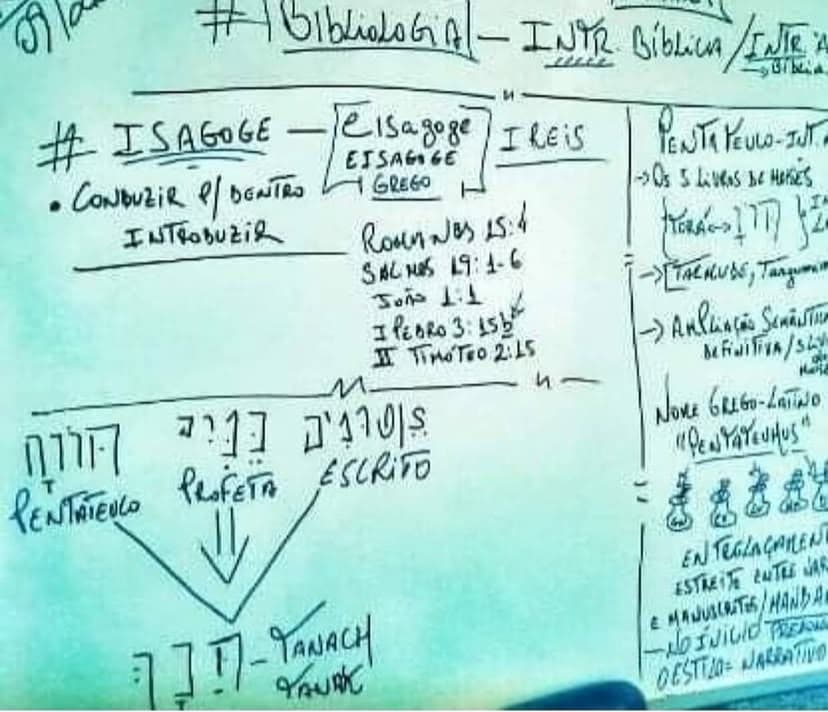 # BIBLIOLOGIA — INTR. BÍBLICA / INTR. A
→ BÍBLIA
# ISAGOGE — Eisagoge
EISAGOGE
GREGO
IREIS
• CONDUZIR P/ DENTRO
INTRODUZIR
ROMANOS 15:4
SALMOS 19:1-6
JOÃO 1:1
I PEDRO 3:15b
II TIMÓTEO 2:15
PENTATEUCO
PROFETA
ESCRITO
TANACH
TANAK
PENTATEUCO-INT.
→ OS 5 LIVROS DE MOISÉS
TORÁ
→ TALMUDE, Targumim
→ AMPLIAÇÃO SEMÂNTICA
DEFINITIVA /
NOME GREGO-LATINO
"PENTATEUHUS"
ENTRELAÇAMEN
ESTREITO ENTRE NAR
E MANUSCRITOS / MANDA
— NO INÍCIO
O ESTILO = NARRATIVO